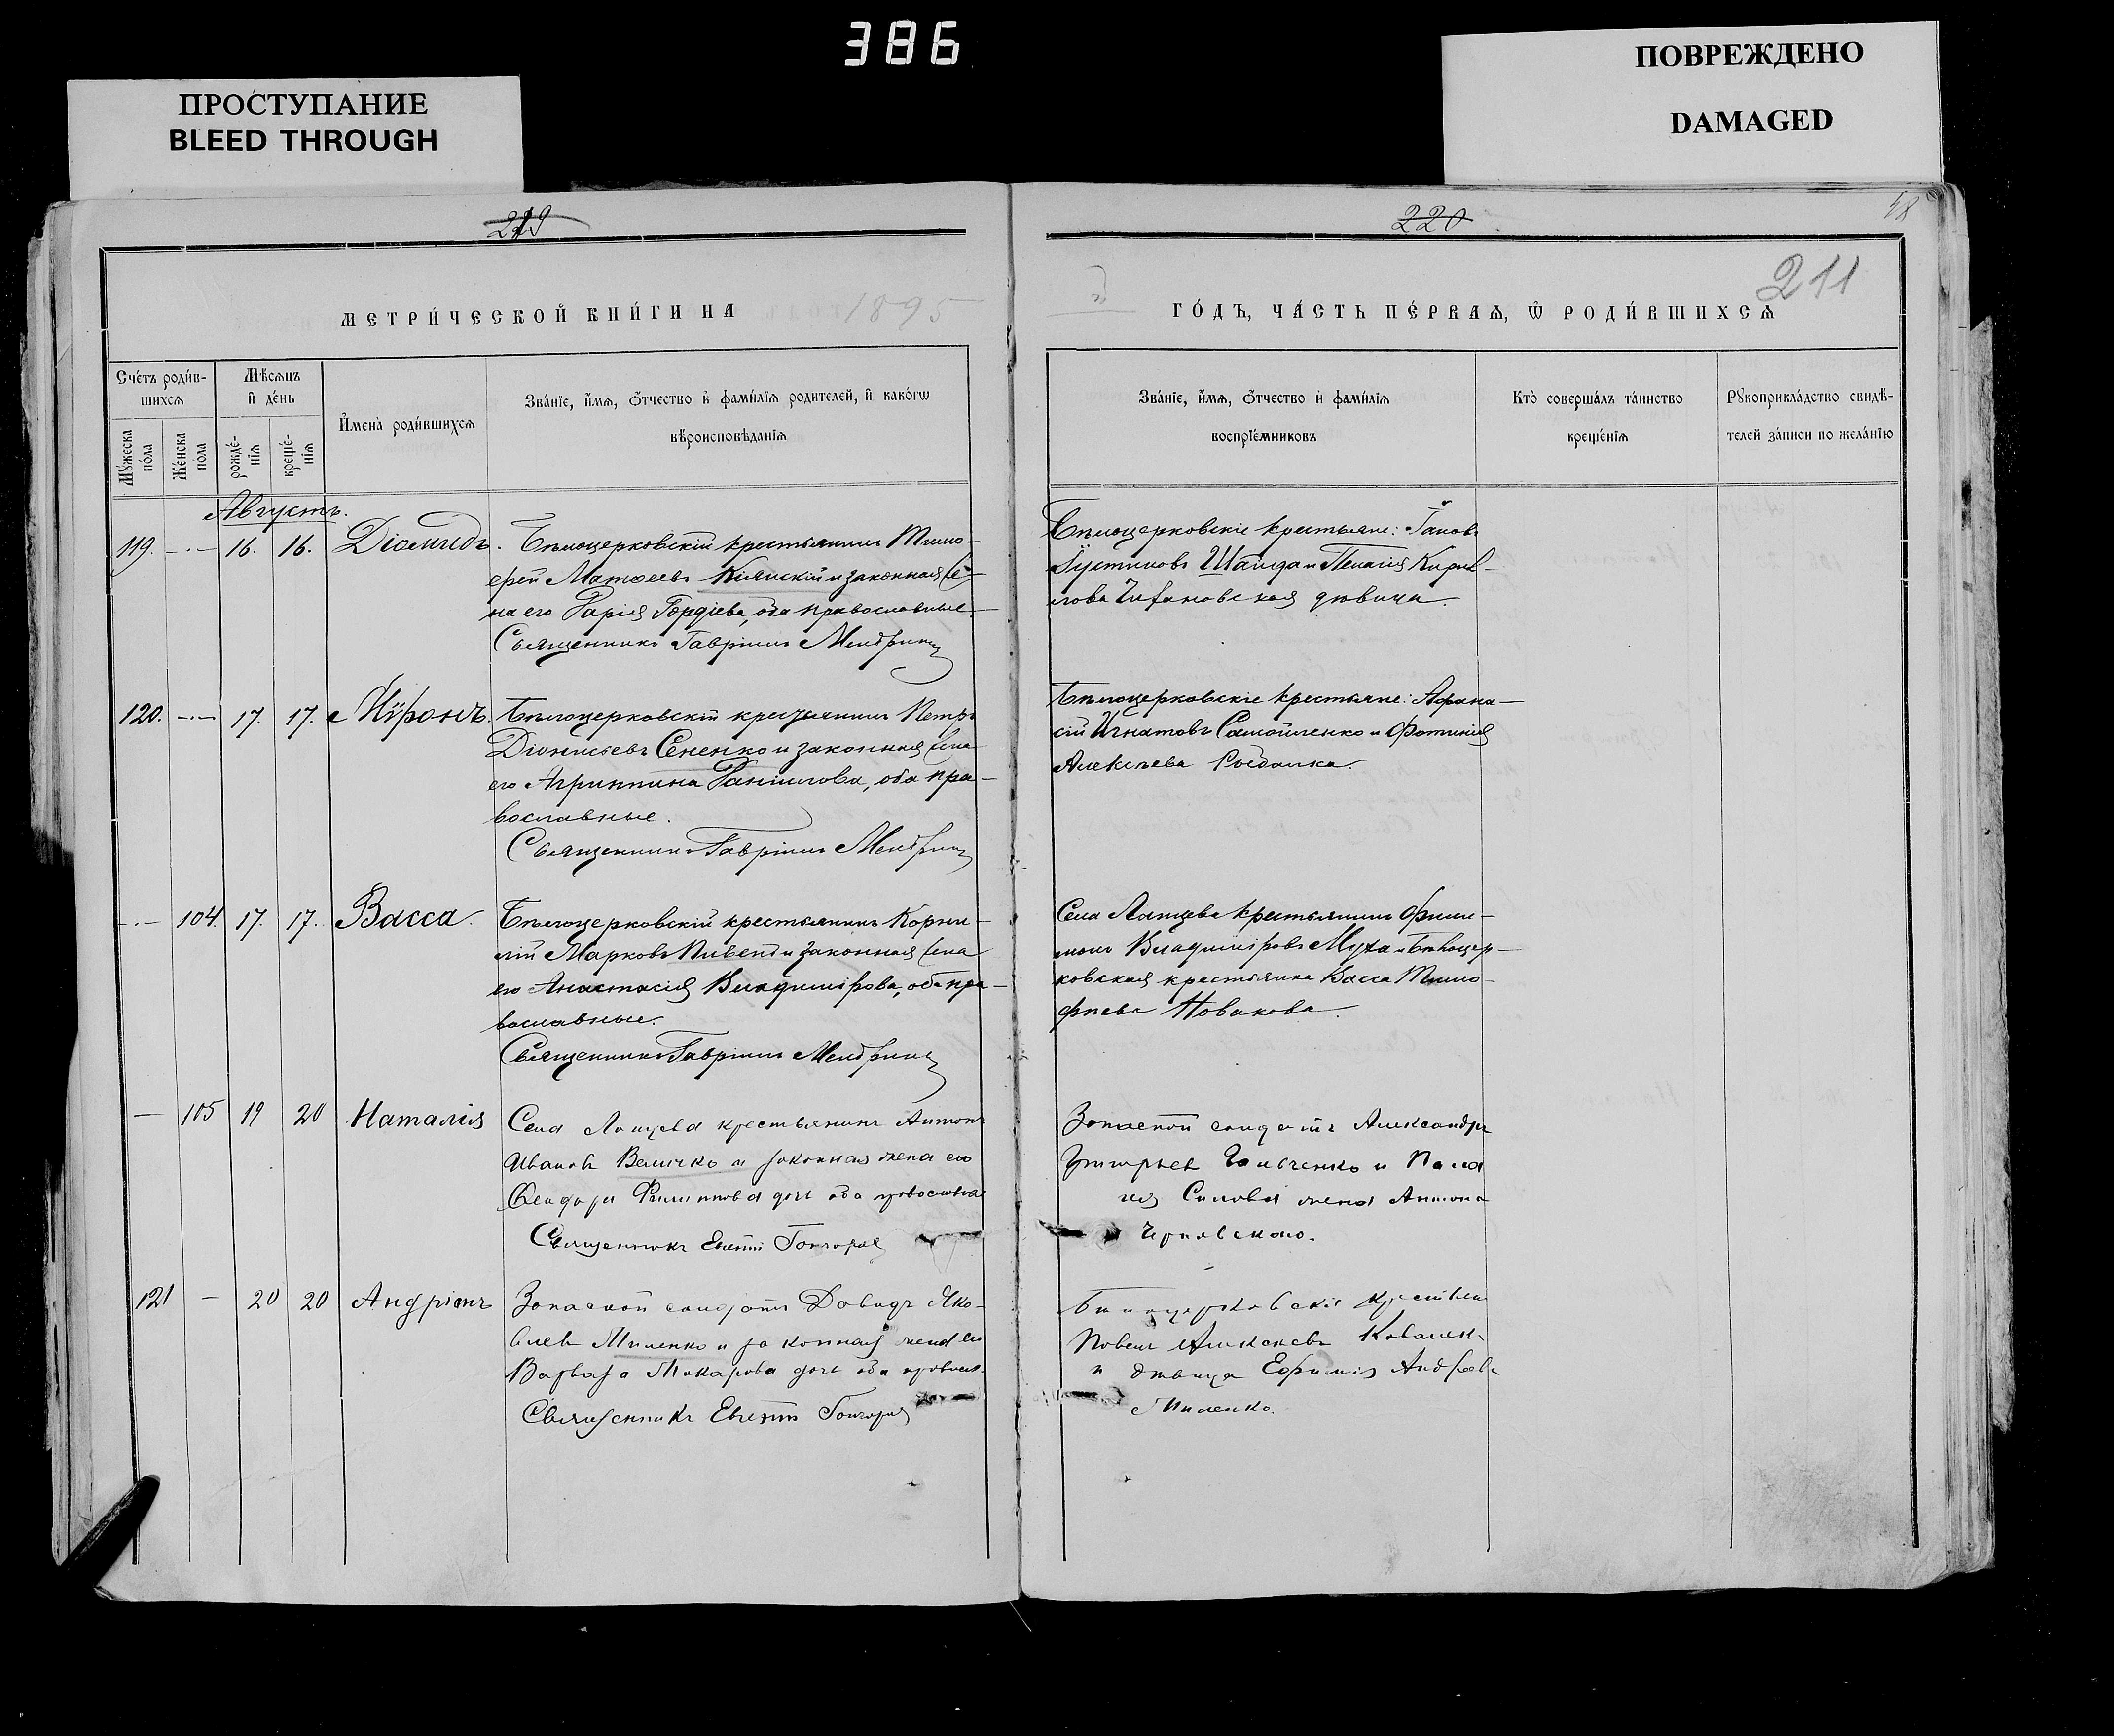 386
ПРОСТУПАНИЕ
BLEED THROUGH
ПОВРЕЖДЕНО
DAMAGED
219
220
211
МЕТРИ́ЧЕСКОЙ КНИ́ГИ НА 1895
ГО́ДЪ, ЧА́СТЬ ПЕ́РВАѦ, Ѿ РОДИ́ВШИХСѦ
Сче́тъ роди́в-
шихсѧ
Мѣ́сѧцъ
и҆ де́нь
Мꙋ́жеска
по́ла
Же́нска
по́ла
рожде́-
нїѧ
креще́-
нїѧ
И҆мена̀ роди́вшихсѧ
Зва́нїе, и҆́мѧ, ѻ҆́тчество и҆ фами́лїѧ родителей, и҆ како́гѡ
вѣроисповѣ́данїѧ
Зва́нїе, и҆́мѧ, ѻ҆́тчество и҆ фами́лїѧ
воспрїе́мниковъ
Кто̀ соверша́лъ та́инство
креще́нїѧ
Рꙋкоприкла́дство свидѣ́-
телей за́писи по жела́нїю
Августъ.
119. 16. 16. Діомидъ.
Бѣлоцерковскій крестьянинъ Тимо-
фей Матѳеевъ Кіянскій и законная же-
на его Дарія Гордіева, оба православные.
Священникъ Гавріилъ
Бѣлоцерковскіе крестьяне:
Іустиновъ и Пелагія Кирил-
лова дѣвица.
120. 17. 17. Міронъ.
Бѣлоцерковскій крестьянинъ Петръ
Діонисіевъ Сененко и законная жена
его Агриппина Даніилова, оба пра-
вославные.
Священникъ Гавріилъ
Бѣлоцерковскіе крестьяне: Афана-
сій Игнатовъ Самойленко и Фотинія
Алексѣева
104. 17. 17. Васса.
Бѣлоцерковскій крестьянинъ Корни-
лій Марковъ Пивень и законная жена
его Анастасія Владимірова, оба пра-
вославные.
Священникъ Гавріилъ
Села крестьянинъ Фили-
монъ Владиміровъ Муха и Бѣлоцер-
ковская крестьянка Васса Тимо-
фѣева Новакова.
105 19 20 Наталія
Села крестьянинъ Антонъ
Ивановъ Величко и законная жена его
Филиппова дочь оба православные
Священникъ
Запасной солдатъ Александръ
и Пела
гея Силова жена Антона
121 20 20 Андріанъ
Запасной солдатъ Давидъ Яко-
влевъ Миленко и законная жена его
Варвара Макарова дочь оба правосл.
Священникъ
Бѣлоцерковскіе крестьяне
Павелъ Алексѣевъ
и дѣвица Ефимія Андреева
Миленко.